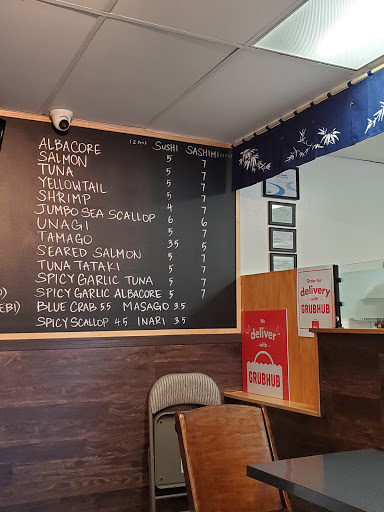 ALBACORE SUSHI SASHIMI
SALMON 5 7
TUNA 5 7
YELLOWTAIL 5 7
SHRIMP 5 7
JUMBO SEA SCALLOP 4
UNAGI 6 6
TAMAGO 5 7
SEARED SALMON 3.5 5
TUNA TATAKI 5 7
SPICY GARLIC TUNA 5 7
SPICY GARLIC ALBACORE 5 7
EBI) BLUE CRAB 5.5 MASAGO 3.5
SPICY SCALLOP 4.5 INARI 3.5
We
deliver
with
GRUBHUB
Order for
delivery
with
GRUBHUB